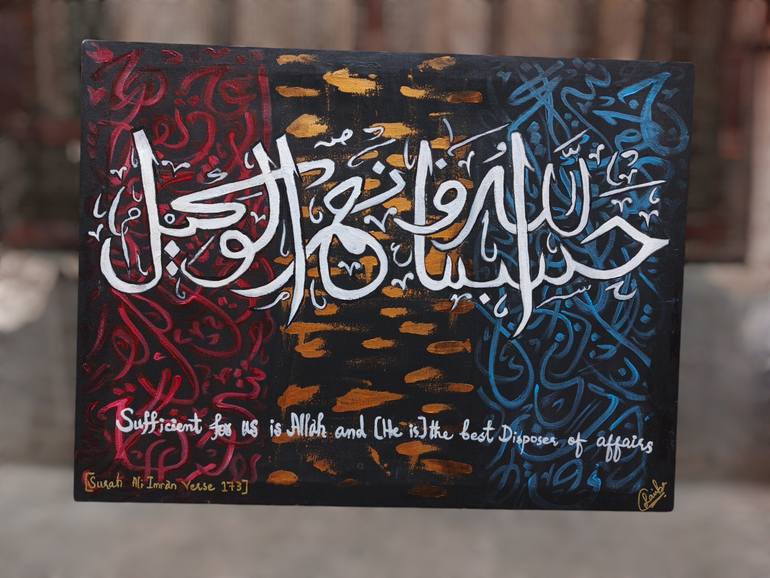 حسبنا الله ونعم الوكيل
Sufficient for us is Allah and [He is] the best Disposer of affairs
[Surah Ali Imran Verse 173]